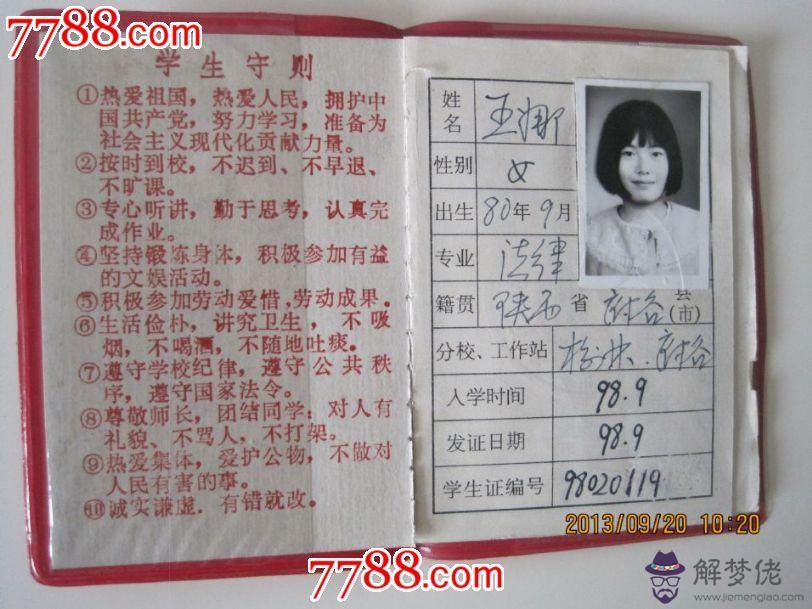 7788.com
7788.com
学生守则
①热爱祖国，热爱人民，拥护中
国共产党，努力学习，准备为
社会主义现代化贡献力量。
②按时到校，不迟到、不早退、
不旷课。
③专心听讲，勤于思考，认真完
成作业。
④坚持锻炼身体，积极参加有益
的文娱活动。
⑤积极参加劳动爱惜，劳动成果。
⑥生活俭朴，讲究卫生，不吸
烟，不喝酒，不随地吐痰。
⑦遵守学校纪律，遵守公共秩
序，遵守国家法令。
⑧尊敬师长，团结同学；对人有
礼貌、不骂人，不打架。
⑨热爱集体，爱护公物，不做对
人民有害的事。
⑩诚实谦虚，有错就改。
姓名 王娜
性别 女
出生 80年9月
专业 法律
籍贯 陕西省 府谷县(市)
分校、工作站 榆林、府谷
入学时间 98.9
发证日期 98.9
学生证编号 98020119
2013/09/20 10:20
7788.com
解梦佬
www.jiemenglao.com